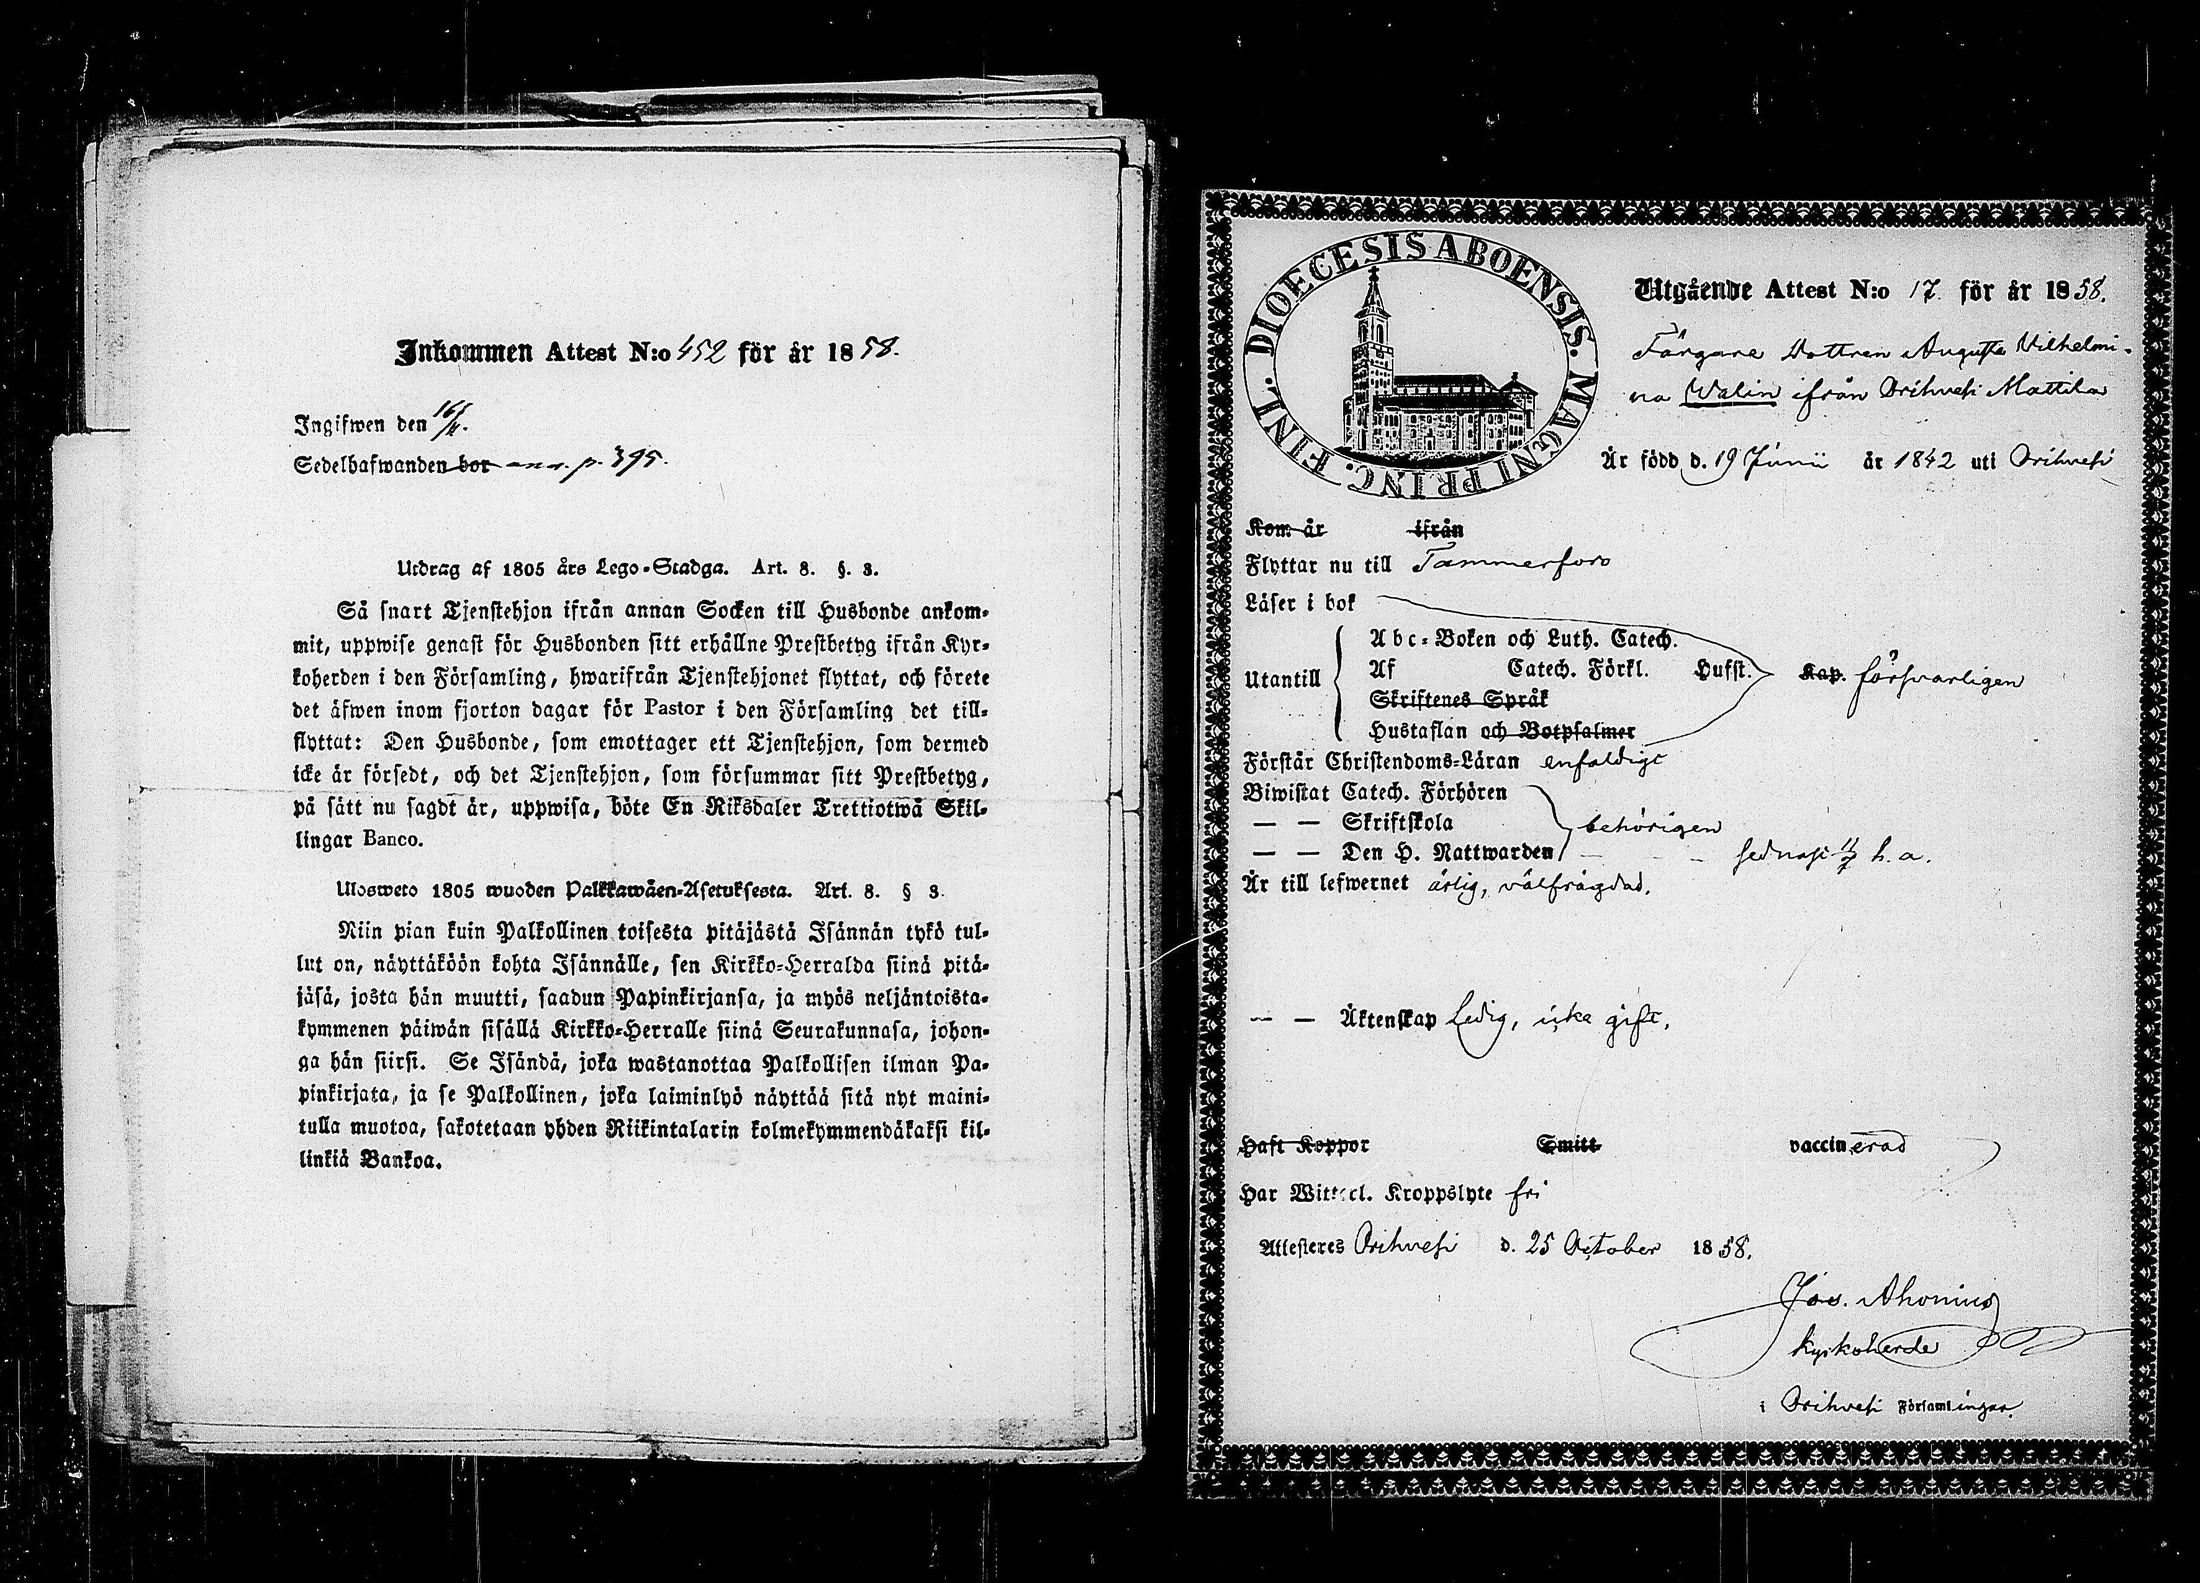 Inkommen Attest N:o 452 för år 1858.
Ingifwen den 16/11.
Sedelhafwanden bor ann. p. 395.
Utdrag af 1805 års Lego-Stadga. Art. 8. §. 3.
Så snart Tjenstehjon ifrån annan Socken till Husbonde ankom-
mit, uppwise genast för Husbonden sitt erhållne Prestbetyg ifrån Kyr-
koherden i den Församling, hwarifrån Tjenstehjonet flyttat, och förete
det äfwen inom fjorton dagar för Pastor i den Församling det till-
flyttat: Den Husbonde, som emottager ett Tjenstehjon, som dermed
icke är försedt, och det Tjenstehjon, som försummar sitt Prestbetyg,
på sätt nu sagdt är, uppwisa, böte En Riksdaler Trettiotwå Skil-
lingar Banco.
Ulosweto 1805 wuoden Palkkawäen-Asetuksesta. Art. 8. § 3.
Niin pian kuin Palkollinen toisesta pitäjästä Isännän tykö tul-
lut on, näyttäköön kohta Isännälle, sen Kirkko-Herralda siinä pitä-
jäsä, josta hän muutti, saadun Papinkirjansa, ja myös neljäntoista-
kymmenen päiwän sisällä Kirkko-Herralle siinä Seurakunnasa, johon-
ga hän siirsi. Se Isändä, joka wastanottaa Palkollisen ilman Pa-
pinkirjata, ja se Palkollinen, joka laiminlyö näyttää sitä nyt maini-
tulla muotoa, sakotetaan yhden Riikintalarin kolmekymmendäkaksi kil-
linkiä Bankoa.
DIOECESIS ABOENSIS. MAGNI PRINC. FINL.
Utgående Attest N:o 17 för år 1858.
Färgare Dottren Augusta Vilhelmi-
na Walin ifrån Orihvesi Mattila
Är född d. 19 Junii år 1842 uti Orihvesi
Kom år ifrån
Flyttar nu till Tammerfors
Läser i bok
Utantill
Abc-Boken och Luth. Catech.
Af Catech. Förkl. Hufst. Kap. försvarligen
Skriftenes Språk
Hustaflan och Botpsalmer
Förstår Christendoms-Läran enfaldigt
Biwistat Catech. Förhören
— — Skriftskola behörigen
— — Den H. Nattwarden sednast 11/7 h. a.
Är till lefwernet ärlig, välfrägdad.
— — Äktenskap Ledig, icke gift.
Haft Koppor Smitt vaccinerad
Har Wittecl. Kroppslyte fri
Attesteres Orihvesi d. 25 October 1858.
Jos. Ahonius
kyrkoherde
i Orihvesi Församlingar.